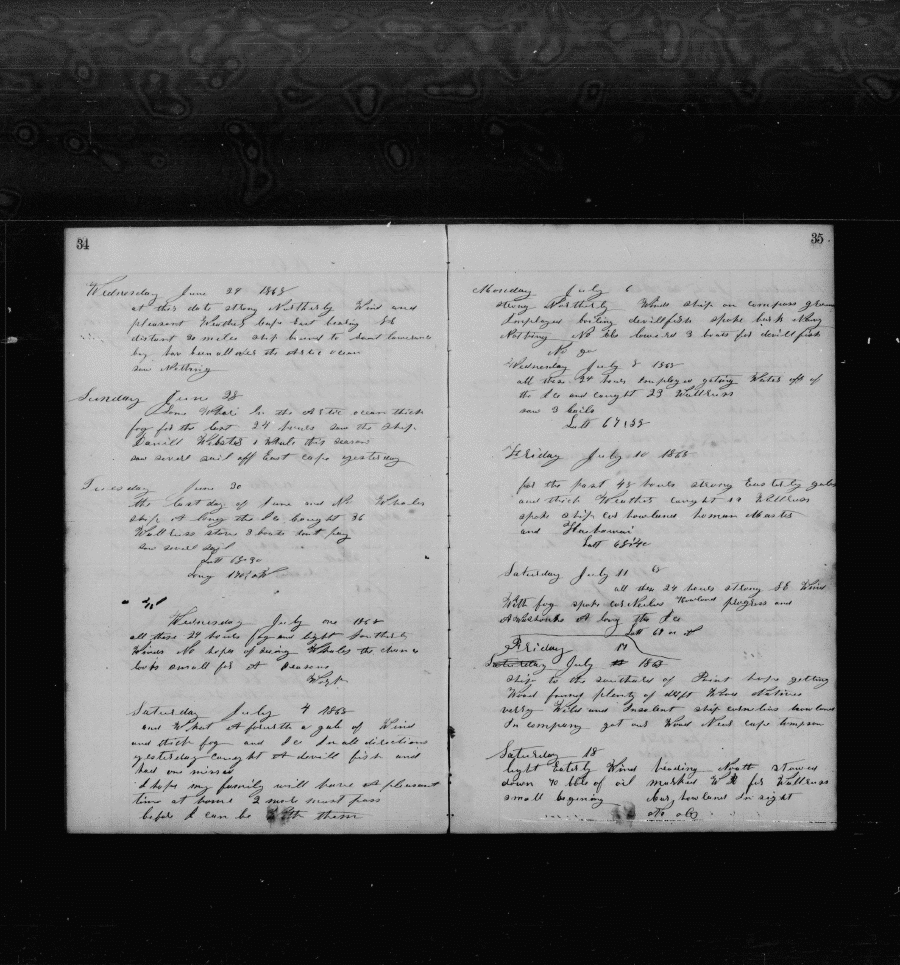 34
Wednesday June 24 1868
at this date strong Northerly Wind and
pleasent Weather Cape East bearing SE
distant 20 miles ship bound to Saint Lawrence
bay has been all over the Artic ocean
saw Nothing
Sunday June 28
Some Whar in the Artic ocean thick
fog for the last 24 hours saw the ship
Daniell Webster 2 Whals this season
saw severl sail off East Cape yesterday
Tuesday June 30
the last day of June and No Whales
ship A long the Ice Caught 36
Wallruss stove 3 boats
saw severl sail
Latt
Long
Wednesday July one 1868
all these 24 hours fog and light Southerly
Winds No hopes of seeing Whales the chance
looks small for A seasons
Work
Saturday July 4 1868
and What A fourth a gale of Wind
and thick fog and Ice In all directions
yesterday caught A devill fish and
had one missed
I hope my family will have A pleasant
time at home 2 more must pass
before I can be With them
35
Monday July 6
strong Northerly Winds ship on compass
Imployed boiling devillfish spoke bark Navy
Nothing No lowered 3 boats for devillfish
No go
Wednesday July 8 1868
all these 24 hours Imployed geting Water off of
the Ice and caught 23 Wallruss
saw 3 sails
Latt
Friday July 10 1868
for the past 48 hours strong Easterly gales
and thick Weather caught 12 Wallruss
spoke ship Cor howland homan Master
and
Latt
Saturday July 11
all these 24 hours strong SE Wind
With fog spoke Cornelius Howland progress and
A long the Ice
Latt 69
Friday 17
Saturday July 1868
ship to the southard of Point hope getting
Wood found plenty of drift Wood Natives
verry Wild and Insolent ship cornelius howland
In company got our Wood Near cape
Saturday 18
light Easterly Wind heading North stowed
down 70 bbls of oil marked W R for Wallruss
small begining Cor howland In sight